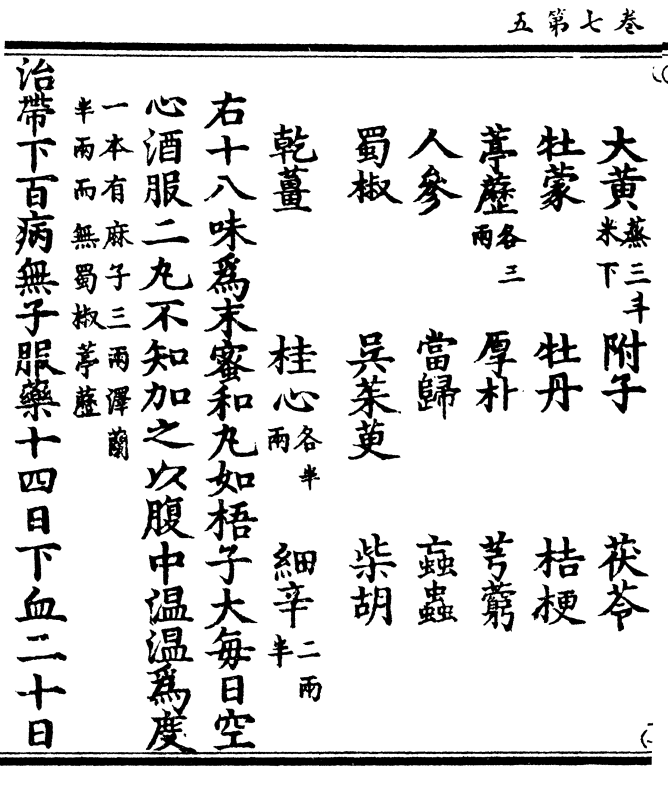 五第七卷
大黃蒸三斗米下 附子 茯苓
牡蒙 牡丹 桔梗
葶藶各三兩 厚朴 芎藭
人參 當歸 蝱蟲
蜀椒 吳茱萸 柴胡
乾薑 桂心各半兩 細辛二兩半
右十八味爲末蜜和丸如梧子大每日空
心酒服二丸不知加之以腹中温温爲度
一本有麻子三兩澤蘭
半兩而無蜀椒葶藶
治帶下百病無子服藥十四日下血二十日